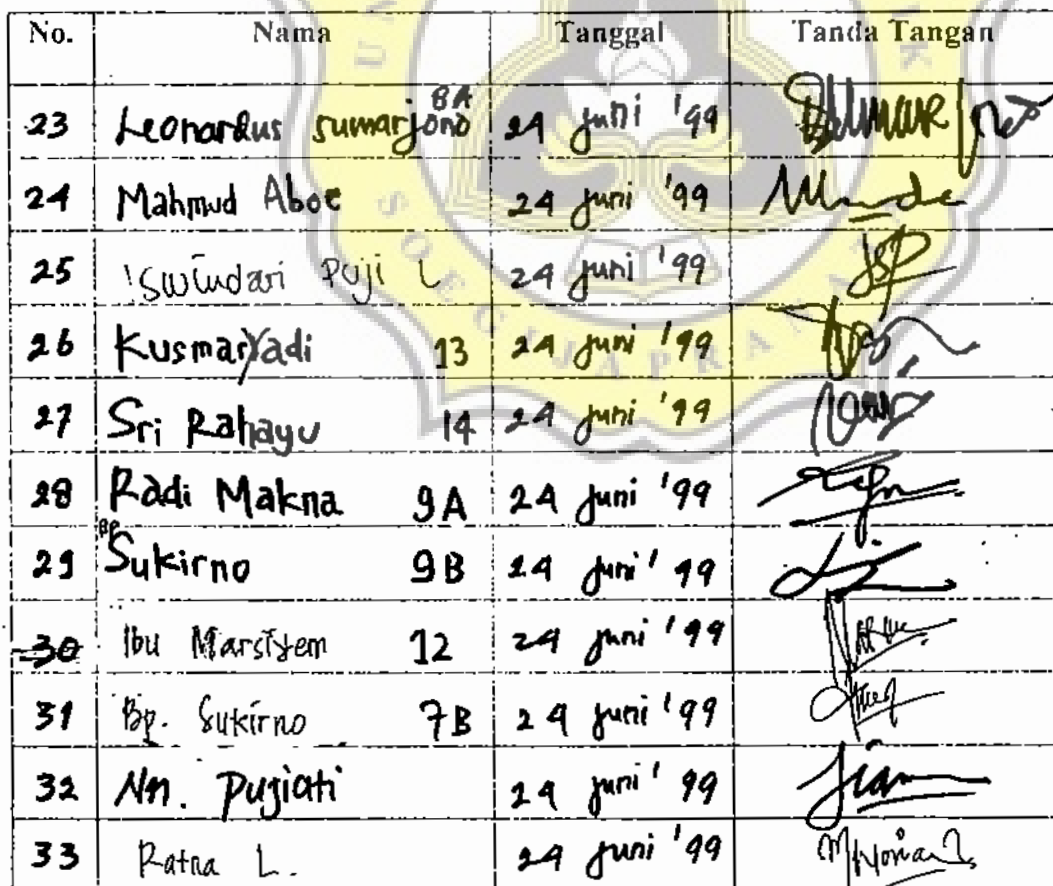 No. Nama Tanggal Tanda Tangan
23 Leonardus sumarjono BA 24 juni '99
24 Mahmud Aboe 24 juni '99
25 Iswindari Puji L 24 juni '99
26 Kusmaryadi 13 24 juni '99
27 Sri Rahayu 14 24 juni '99
28 Radi Makna 9A 24 juni '99
29 Bp Sukirno 9B 24 juni '99
30 Ibu Marsiyem 12 24 juni '99
31 Bp. Sukirno 7B 24 juni '99
32 Nn. Pujiati 24 juni '99
33 Ratna L. 24 juni '99
SOEGIJAPRANATA